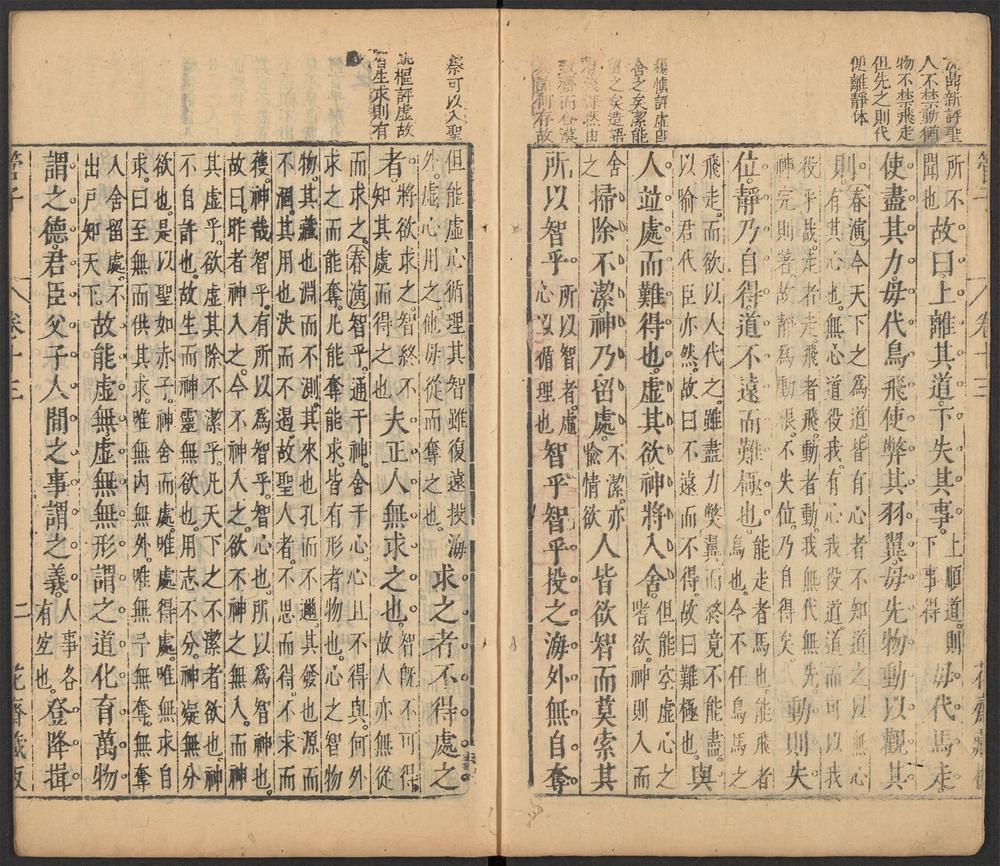 沈鼎新評聖
人不禁動猶
物不禁飛走
但先之則代
便離靜体
楊慎評虛自
舍之矣潔能
留之矣造語
卷十三
花齋藏板
所不
聞也
故曰上離其道下失其事
上順道則
下事得
毋代馬走
使盡其力毋代鳥飛使弊其羽翼毋先物動以觀其
則
春演今天下之爲道皆有心者不知道之以無心
則有其心也無心道役我有心我役道道而可以我
役乎哉走者走飛者飛動者動我無代無先
神完則著故靜爲動悵不失位乃自得矣
動則失
位靜乃自得道不遠而難極也
能走者馬也能飛者
鳥也今不任鳥馬之
飛走而欲以人代之雖盡力弊翼而終竟不能盡
以喻君代臣亦然故曰道不遠而不得故曰難極也
與
人並處而難得也虛其欲神將入舍
但能空虛心
嗜欲神則入而
舍
之
掃除不潔神乃留處
不潔亦
喻情欲
人皆欲智而莫索其
所以智乎
所以智者虛
心以循理也
智乎智乎投之海外無自奪
祭可以入聖
樞評虛故
智生求則有
但能虛心循理其智雖復遠投海
外虛心用之他毋從而奪之也
求之者不得處之
者
將欲求之智終不
知其處而得之也
夫正人無求之也
智既不可得
故人亦無從
而求之春演智乎通于神舍于心心且不得與何
求之而能奪凡能奪能求皆有形者物也心之智
物其藏也淵而不測其來也孔而不遁其發也源而
不涸其用也決而不遏故聖人者不思而得不求而
穫神哉智乎有所以爲智乎智心也所以爲智神也
故曰昨者神入之今不神入之欲不神之無入而神
其虛乎欲虛其除不潔乎凡天下之不潔者欲也神
不自許也故生而神靈無欲也用志不分神凝無分
欲也是以聖如赤子神舍而處唯處得處唯無求自
求曰至無而供其求唯無內無外唯無予無奪無自奪
入舍留處不
出戶知天下
故能虛無虛無無形謂之道化育萬物
謂之德君臣父子人間之事謂之義
人事各
有宜也
登降揖
管子
卷十三
二
花齋藏板